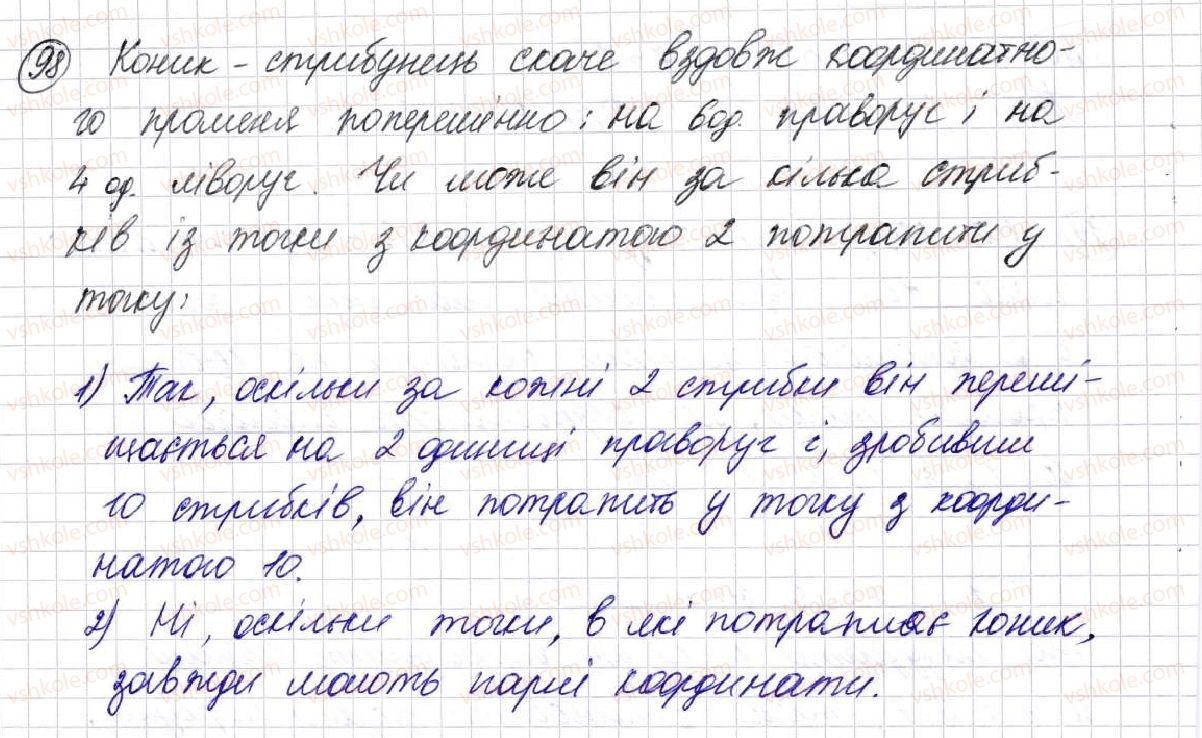 98 Коник - стрибунець скаче вздовж координатно-
го променя поперемінно: на 6 од. праворуч і на
4 од. ліворуч. Чи може він за кілька стриб-
ків із точки з координатою 2 потрапити у
точку:
1) Так, оскільки за кожні 2 стрибки він перемі-
щається на 2 одиниці праворуч і, зробивши
10 стрибків, він потрапить у точку з коорди-
натою 10.
2) Ні, оскільки точки, в які потрапляє коник,
завжди мають парні координати.